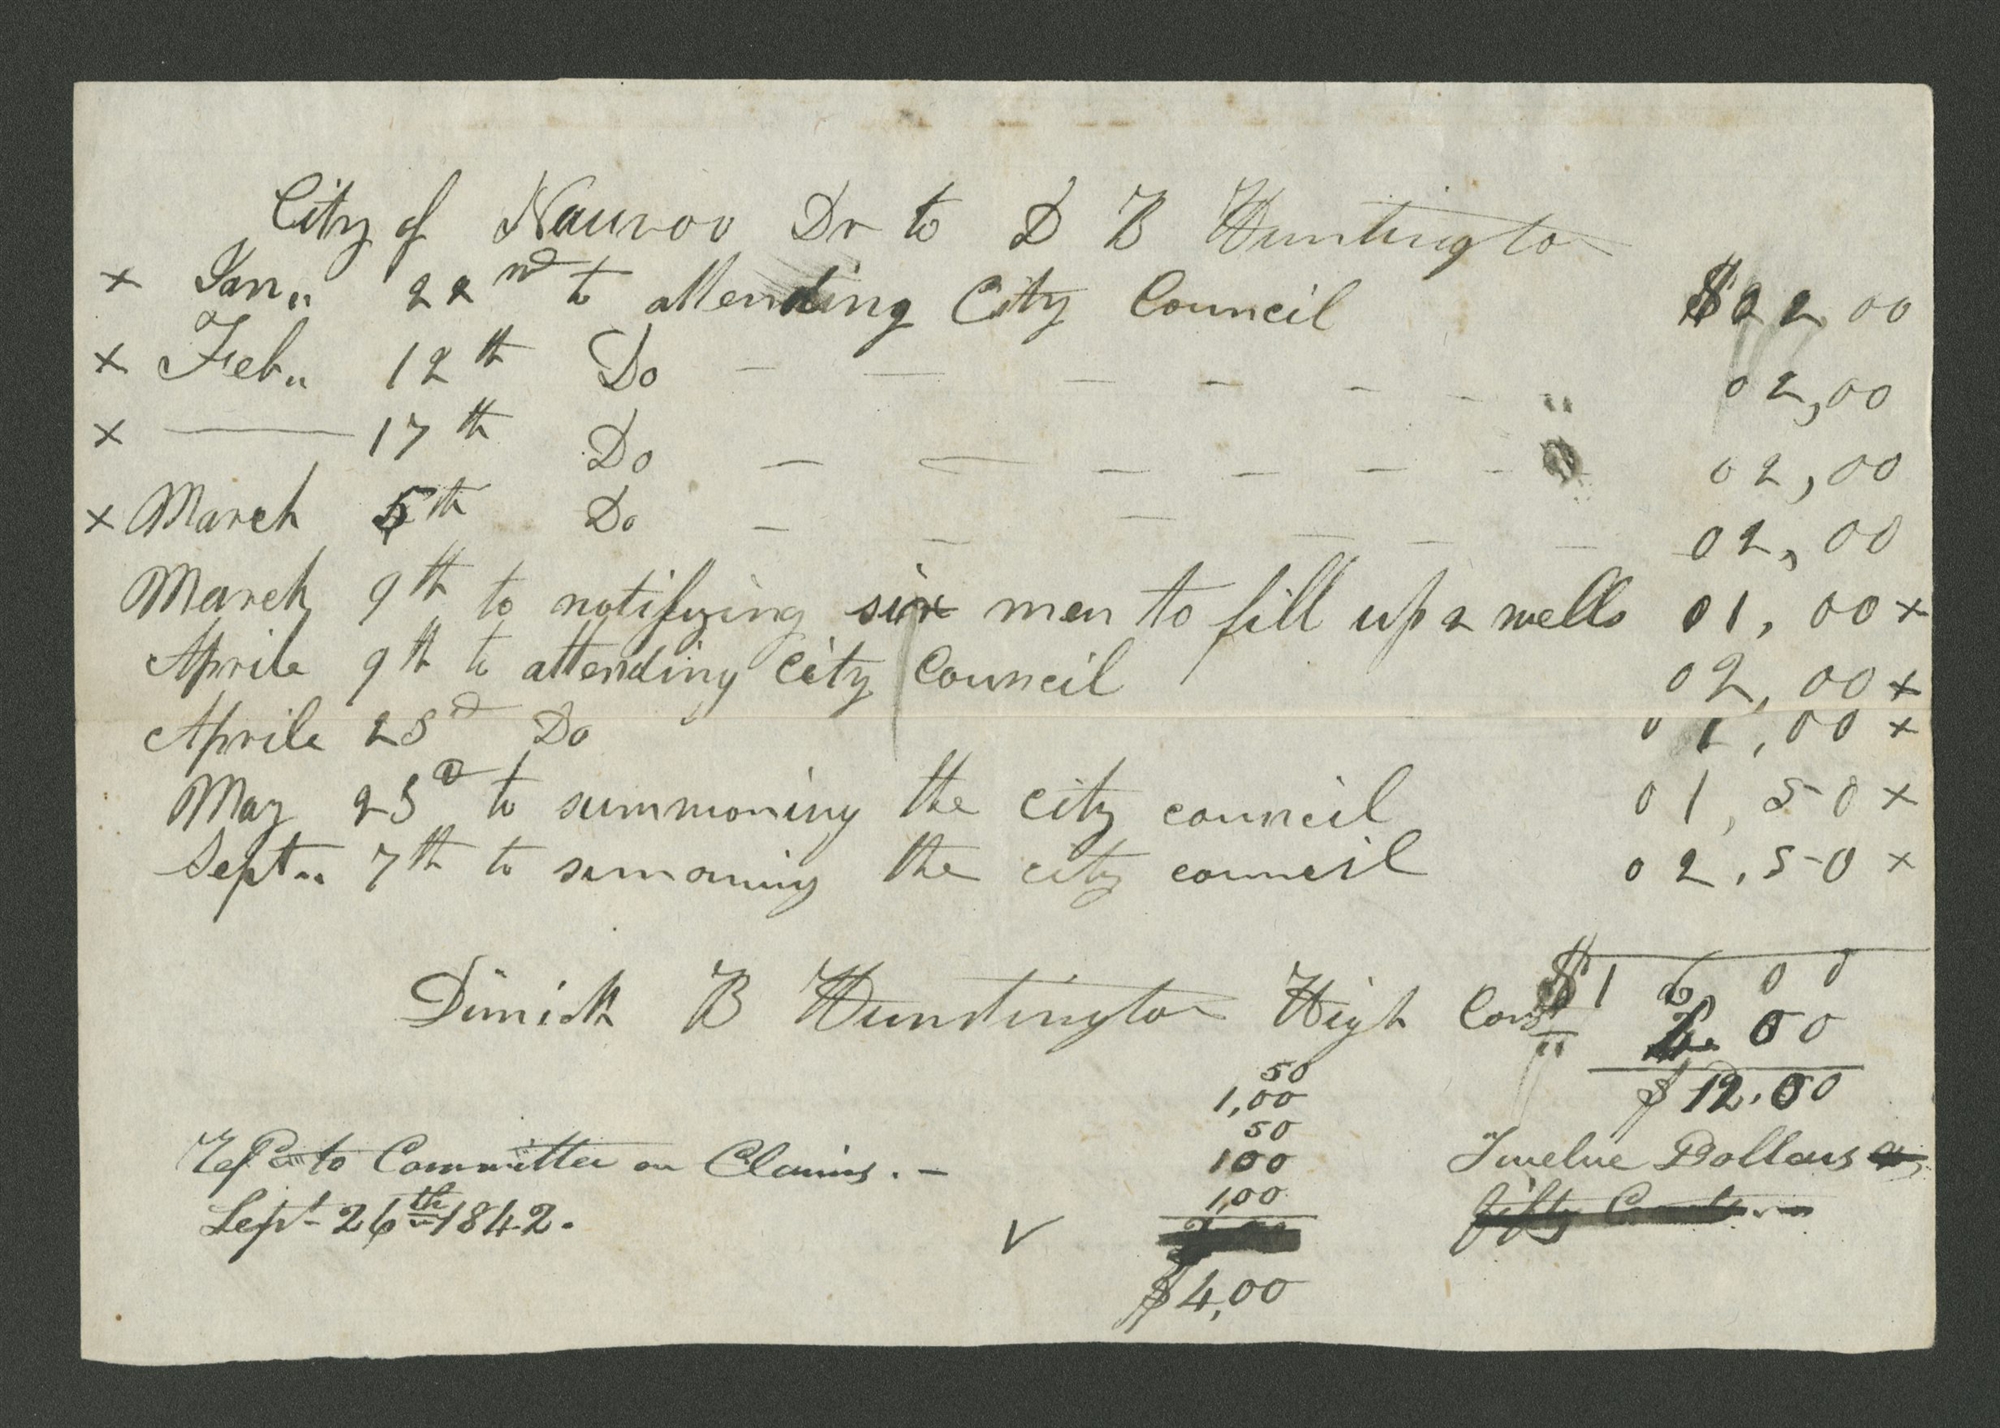 City of Nauvoo Dr to D B Huntington
x Jan,, 22nd to attending City Council $02 00
x Feb,, 12th Do — — — — — - ,, 02,00
x —— 17th Do — — — — — - 02,00
x March 5th Do — — — — — — 02,00
March 9th to notifying six men to fill up 2 wells 01,00 x
Aprile 9th to attending City Council 02,00 x
Aprile 23d Do 01,00 x
May 23d to summoning the city council 01,50 x
Sept.. 7th to sumoning the city council 02.50 x
$16 00
Dimick B Huntington High Const
4.00
$12.00
50
1,00
50
100
1,00
$4,00
Twelve Dollars
fifty Cents
Refd to Committee on Claims. —
Sept- 26th 1842.
✓